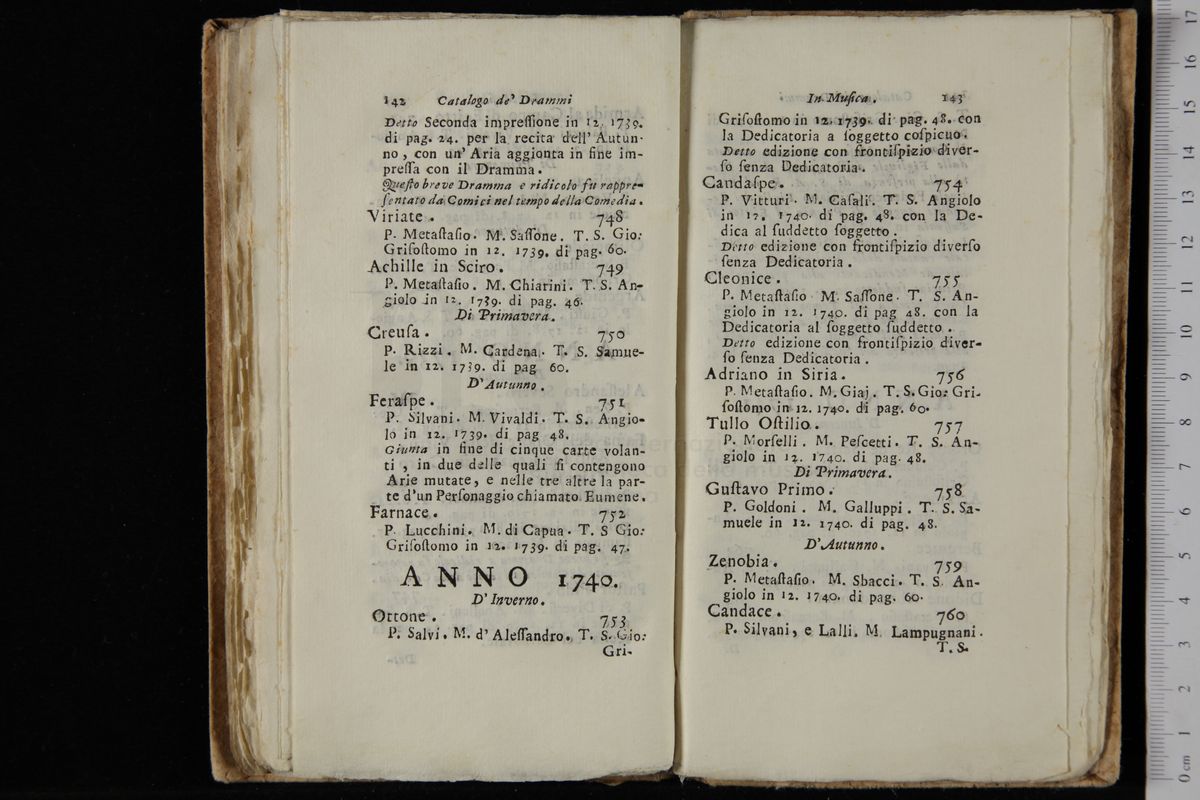 142 Catalogo de' Drammi
Detto Seconda impreſſione in 12. 1739.
di pag. 24. per la recita dell' Autun-
no, con un' Aria aggionta in fine im-
preſſa con il Dramma.
Queſto breve Dramma e ridicolo fu rappre-
ſentato da Comici nel tempo della Comedia.
Viriate. 748
P. Metaſtaſio. M. Saſſone. T. S. Gio:
Griſoſtomo in 12. 1739. di pag. 60.
Achille in Sciro. 749
P. Metaſtaſio. M. Chiarini. T. S. An-
giolo in 12. 1739. di pag. 46.
Di Primavera.
Creuſa. 750
P. Rizzi. M. Cardena. T. S. Samue-
le in 12. 1739. di pag 60.
D' Autunno.
Feraſpe. 751
P. Silvani. M. Vivaldi. T. S. Angio-
lo in 12. 1739. di pag 48.
Giunta in fine di cinque carte volan-
ti, in due delle quali ſi contengono
Arie mutate, e nelle tre altre la par-
te d'un Perſonaggio chiamato Eumene.
Farnace. 752
P. Lucchini. M. di Capua. T. S Gio:
Griſoſtomo in 12. 1739. di pag. 47.
ANNO 1740.
D' Inverno.
Ottone. 753
P. Salvi. M. d' Aleſſandro. T. S. Gio:
Gri-
In Muſica. 143
Griſoſtomo in 12. 1739. di pag. 48. con
la Dedicatoria a ſoggetto coſpicuo.
Detto edizione con frontiſpizio diver-
ſo ſenza Dedicatoria.
Candaſpe. 754
P. Vitturi. M. Caſali. T. S. Angiolo
in 12. 1740. di pag. 48. con la De-
dica al ſuddetto ſoggetto.
Detto edizione con frontiſpizio diverſo
ſenza Dedicatoria.
Cleonice. 755
P. Metaſtaſio M. Saſſone. T. S. An-
giolo in 12. 1740. di pag 48. con la
Dedicatoria al ſoggetto ſuddetto.
Detto edizione con frontiſpizio diver-
ſo ſenza Dedicatoria.
Adriano in Siria. 756
P. Metaſtaſio. M. Giaj. T. S. Gio: Gri-
ſoſtomo in 12. 1740. di pag. 60.
Tullo Oſtilio. 757
P. Morſelli. M. Peſcetti. T. S. An-
giolo in 12. 1740. di pag. 48.
Di Primavera.
Guſtavo Primo. 758
P. Goldoni. M. Galluppi. T. S. Sa-
muele in 12. 1740. di pag. 48.
D' Autunno.
Zenobia. 759
P. Metaſtaſio. M. Sbacci. T. S. An-
giolo in 12. 1740. di pag. 60.
Candace. 760
P. Silvani, e Lalli. M. Lampugnani.
T. S.
0 cm 1 2 3 4 5 6 7 8 9 10 11 12 13 14 15 16 17